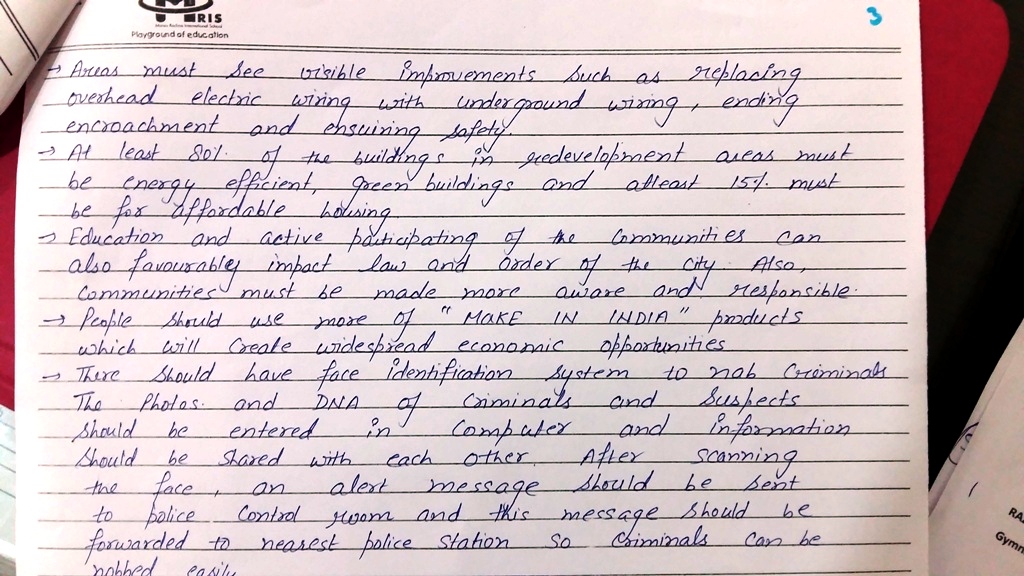 MRIS
Manav Rachna International School
Playground of education
3
→ Areas must see visible improvements such as replacing
overhead electric wiring with underground wiring, ending
encroachment and ensuiring safety.
→ At least 80%. of the buildings in redevelopment areas must
be energy efficient, green buildings and atleast 15%. must
be for affordable housing.
→ Education and active participating of the communities can
also favourably impact law and order of the city. Also,
communities must be made more aware and responsible.
→ People should use more of "MAKE IN INDIA" products
which will create widespread economic opportunities
→ There should have face identification system to nab criminals
The Photos. and DNA of criminals and suspects
should be entered in computer and information
should be shared with each other. After scanning
the face, an alert message should be sent
to police control room and this message should be
forwarded to nearest police station so criminals can be
nabbed easily
RA
Gymn